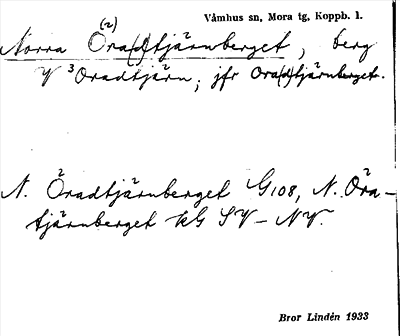 Våmhus sn, Mora tg, Koppb. l.
(2)
Norra Öra(d)tjärnberget, berg
V ³Oradtjärn; jfr Ora(d)tjärnberget.
N. Öradtjärnberget G108, N. Öra-
tjärnberget kG SV – NV.
Bror Lindén 1933